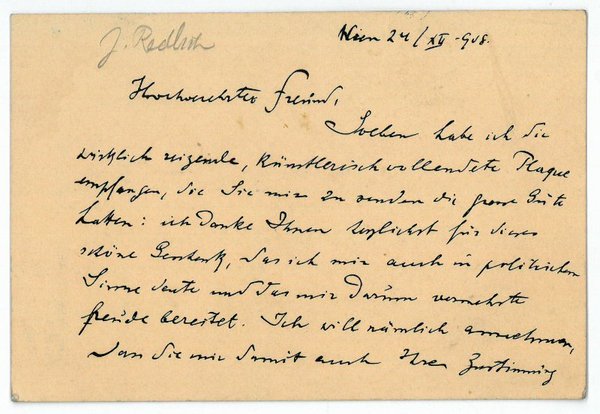 J. Redlich
Wien 24/XII 908.
Hochverehrter Freund,
Soeben habe ich die
wirklich reizende, künstlerisch vollendete Plaque
empfangen, die Sie mir zu senden die grosse Güte
hatten: ich danke Ihnen herzlichst für dieses
schöne Geschenk, das ich mir auch in politischem
Sinne deute und das mir darum vermehrte
Freude bereitet. Ich will nämlich annehmen,
dass Sie mir damit auch Ihre Zustimmung